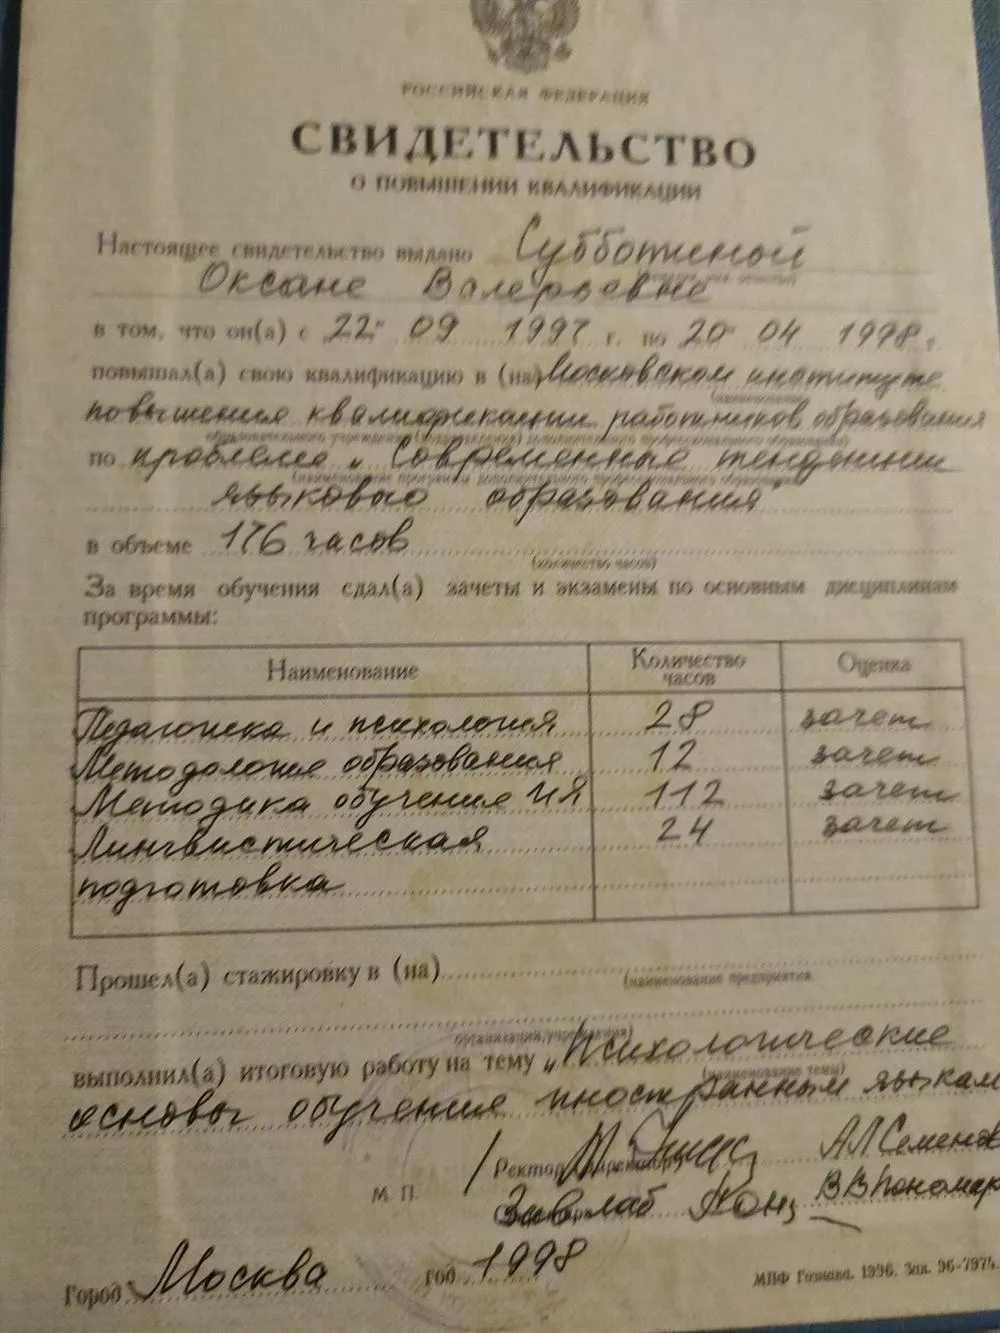 РОССИЙСКАЯ ФЕДЕРАЦИЯ
СВИДЕТЕЛЬСТВО
О ПОВЫШЕНИИ КВАЛИФИКАЦИИ
Настоящее свидетельство выдано Субботиной
Оксане Валерьевне
в том, что он(а) с 22 09 1997 г. по 20 04 1998 г.
повышал(а) свою квалификацию в (на) Московском институте
повышения квалификации работников образования
по проблеме „Современные тенденции
языкового образования"
в объеме 176 часов
(количество часов)
За время обучения сдал(а) зачеты и экзамены по основным дисциплинам
программы:
Наименование Количество часов Оценка
Педагогика и психология 28 зачет
Методология образования 12 зачет
Методика обучения ИЯ 112 зачет
Лингвистическая 24 зачет
подготовка
Прошел(а) стажировку в (на)
(наименование предприятия,
организации, учреждения)
выполнил(а) итоговую работу на тему „Психологические
(наименование темы)
основы обучения иностранным языкам
Ректор А Л Семенов
М. П.
Зав лаб В В Пономар
Город Москва год 1998
МПФ Гознака. 1996. Зак. 96-7974.